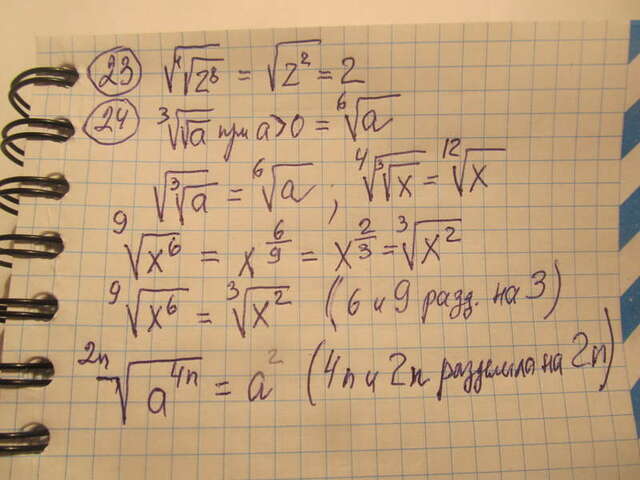 23 √(⁴√(2⁸)) = √(2²) = 2
24 ³√(√a) при a>0 = ⁶√a
√(³√a) = ⁶√a ; ⁴√(³√x) = ¹²√x
⁹√(x⁶) = x^(6/9) = x^(2/3) = ³√(x²)
⁹√(x⁶) = ³√(x²) (6 и 9 разд. на 3)
²ⁿ√(a⁴ⁿ) = a² (4n и 2n разделила на 2n)